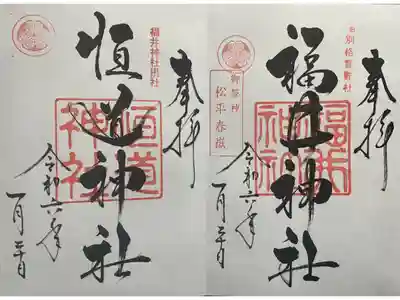 奉拝
旧別格官幣社
福井神社
御祭神
松平春嶽
福井神社
令和六年
一月二日
奉拝
福井神社摂社
恒道神社
恒道神社
令和六年
一月二日